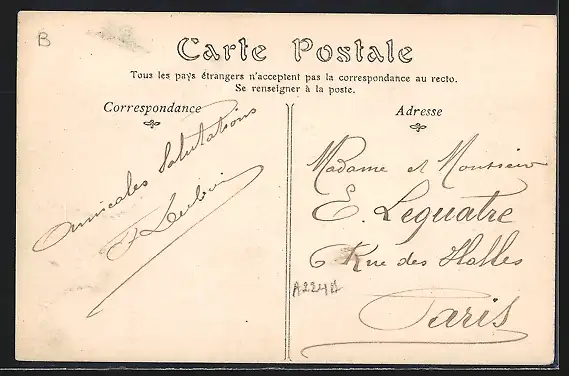 B
Carte Postale
Tous les pays étrangers n'acceptent pas la correspondance au recto.
Se renseigner à la poste.
Correspondance
Amicales Salutations
Adresse
Madame et Monsieur
E. Lequatre
6 Rue des Halles
A224A
Paris